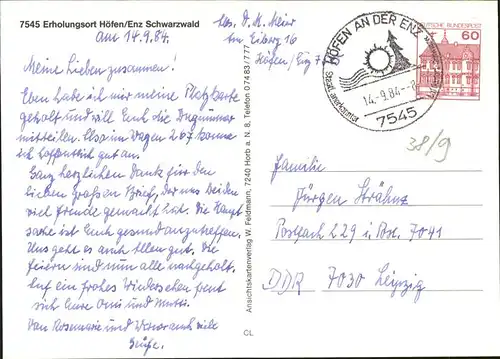 7545 Erholungsort Höfen/Enz Schwarzwald
am 14.9.84.
Abs. D. M. Meier
Am Eiberg 16
Höfen/Enz 7
Meine Lieben zusammen!
Eben habe ich mir meine Platzkarte
geholt und will Euch die Zugnummer
mitteilen. Also im Wagen 267 komme
ich hoffentlich gut an.
Ganz herzlichen Dank für den
lieben großen Brief, der uns beiden
viel Freude gemacht hat. Die Haupt
sache ist Euch gesund anzutreffen.
Uns geht es auch allen gut. Die
Feiern sind nun alle nachgeholt.
Auf ein frohes Wiedersehen freut
sich Eure Omi und Mutti.
Von Rosemarie und Werner auch viele
Grüße.
Ansichtskartenverlag W. Feldmann, 7240 Horb a. N. 8, Telefon 0 74 83 / 7 77
CL
HÖFEN AN DER ENZ
Staatl. anerkannter
14.-9.84-8
7545
DEUTSCHE BUNDESPOST
60
38/9
Familie
Jürgen Strähnz
Postfach 229 i. Bz. 7041
DDR 7030 Leipzig